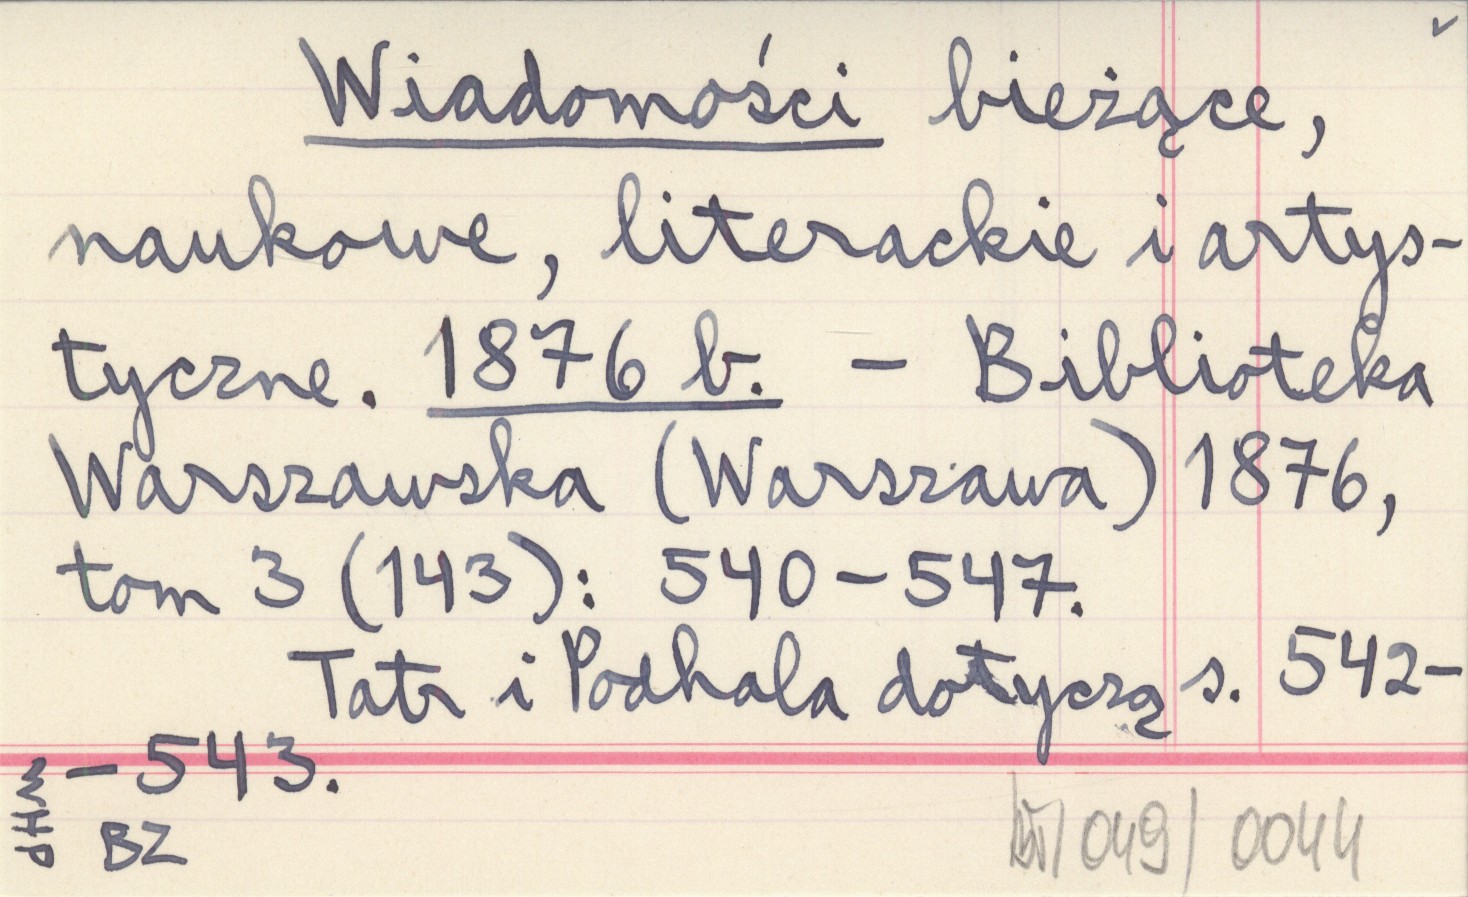 Wiadomości bieżące,
naukowe, literackie i artys-
tyczne. 1876 b. - Biblioteka
Warszawska (Warszawa) 1876,
tom 3 (143): 540-547.
Tatr i Podhala dotyczą s. 542-
-543.
BZ
049/0044